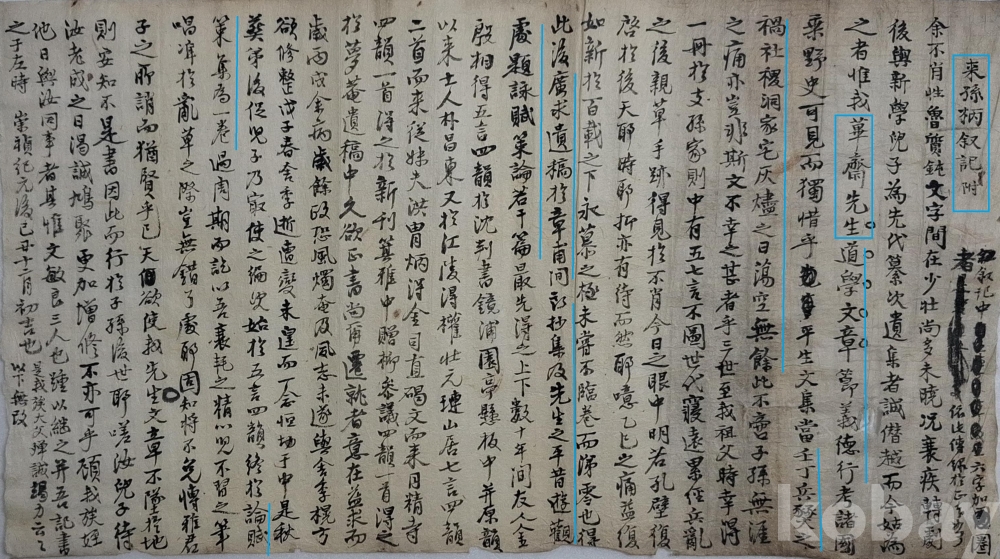 來孫柄叙記附
余不肖性魯質鈍文字間在少壯尚多未曉况衰疾
後與新學兒子為先代纂次遺集者誠僭越而今始為
之者惟我草齋先生道學文章節義德行者諸國
乘野史可見而獨惜乎平生文集當壬丁兵燹之
禍社稷洞家宅灰燼之日蕩空無餘此不啻子孫無涯
之痛亦豈非斯文不幸之甚者乎三世至我祖父時幸得
一冊於支孫家則中有五七言不圖世代寢遠累經兵亂
之後親草手跡得見於不肖今日之眼中明若孔壁復
啓於後天耶時耶抑亦有待而然耶噫乙巳之痛益復
如新於百載之下永慕之極未嘗不臨卷而涕零也得
此後廣求遺稿於章甫間或抄集及先生之平昔遊觀
處題詠賦策論若干篇最先得之上下數十年間友人金
殷相得五言四韻於沈判書鏡浦園亭懸板中并原韻
以來士人朴昌東又於江陵得權壯元璉山居七言四韻
二首而來從妹夫洪胄炳得金司直碣文而來月精寺
四韻一首得之於新刊篆雅中贈柳參議四韻一首得之
於夢菴遺稿中久欲正書尚爾遷就者意在益求而
歲丙戌金病歲餘政恐風燭奄及風志未遂與舍季棍方
欲修整戊子春舍季逝遭變未遑而一念恒切于中是秋
葵弟後促兒子乃寂使之編次始於五言四韻終於論賦
策藁為一卷過周期而訖以吾衰耗之精兒不習之筆
唱准於亂草之際豈無錯了處耶固知將不免博雅君
子之所誚而猶賢乎已天欲使我先生文章不墜於地
則安知不是書因此而行於子孫後世耶嗟汝兒子待
汝老成之日渴誠鳩聚更加增修不亦可乎顧我族姪
他日與汝同事者其惟文敏良三人也踵以繼之并五記書
之于左時 崇禎紀元後己丑十二月初吉也